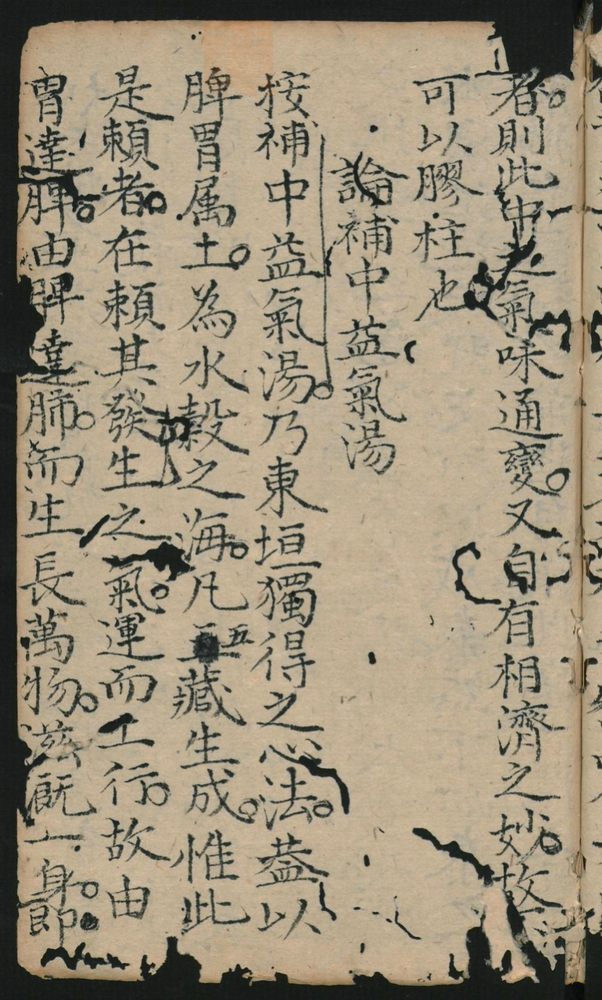 者則此中之氣味通變。又自有相濟之妙。故不
可以膠柱也
論補中益氣湯
按補中益氣湯。乃東垣獨得之心法。葢以
脾胃属土。為水穀之海。凡五藏生成。惟此
是頼者。在頼其發生之氣。運而工行。故由
胃達脾。由脾達肺。而生長萬物。滋溉一身。即